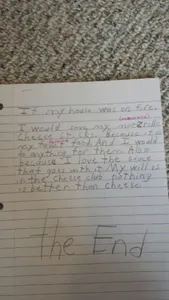 If my house was on fire,
I would save my mozzerella
cheese sticks. Because it is
my favorite food. And I would
do anything for them. Also
because I love the sauce
that goes with it. My will is
in the cheese nothing
is better than cheese
the End